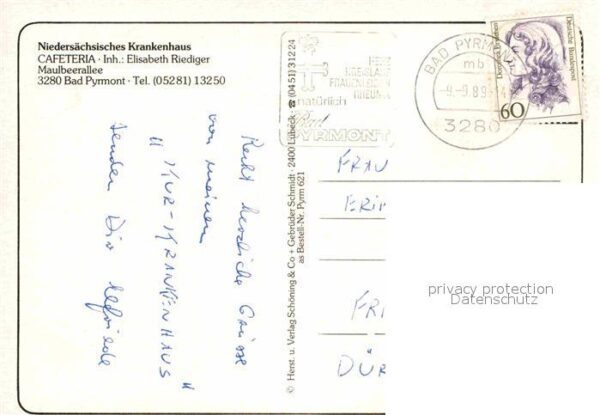 Niedersächsisches Krankenhaus
CAFETERIA · Inh.: Elisabeth Riediger
Maulbeerallee
3280 Bad Pyrmont · Tel. (05281) 13250
Recht herzliche Grüsse
von meinem
"KUR-KRANKENHAUS"
senden Dir Elfriede
© Herst. u. Verlag Schöning & Co + Gebrüder Schmidt · 2400 Lübeck · ☎ (0451) 31224
as Bestell-Nr. Pyrm 621
HERZ
KREISLAUF
FRAUENLEIDEN
RHEUMA
natürlich
Bad
PYRMONT
BAD PYRMONT
mb
-9.-9.89.-14
3280
Dorothea Erxleben
Deutsche Bundespost
60
FRAU
FRI
DÜR
privacy protection
Datenschutz